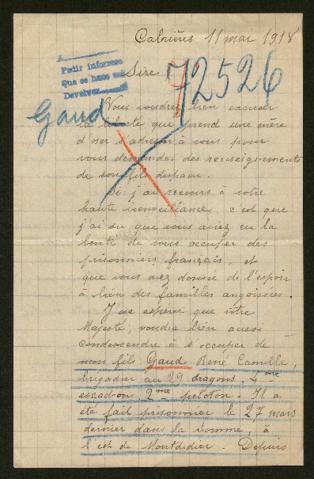 Cabrières 11 mai 1918
A
Pedir informes
Que se hace saber
Devolver
Sire
72526
Gaud
Vous voudrez bien excuser
la liberté que prend une mère
d'oser s'adresser à vous pour
vous demander des renseignements
de son fils disparu.
Si j'ai recours à votre
haute bienveillance, c'est que
j'ai su que vous aviez eu la
bonté de vous occuper des
prisonniers français, et
que vous avez donné de l'espoir
à bien des familles angoissées.
J'ose espérer que votre
Majesté, voudra bien aussi
condescendre à s'occuper de
mon fils Gaud René Camille,
brigadier au 29 dragons, 4me
escadron 2me peloton. Il a
été fait prisonnier le 27 mars
dernier dans la Somme, à
l'est de Montdidier. Depuis